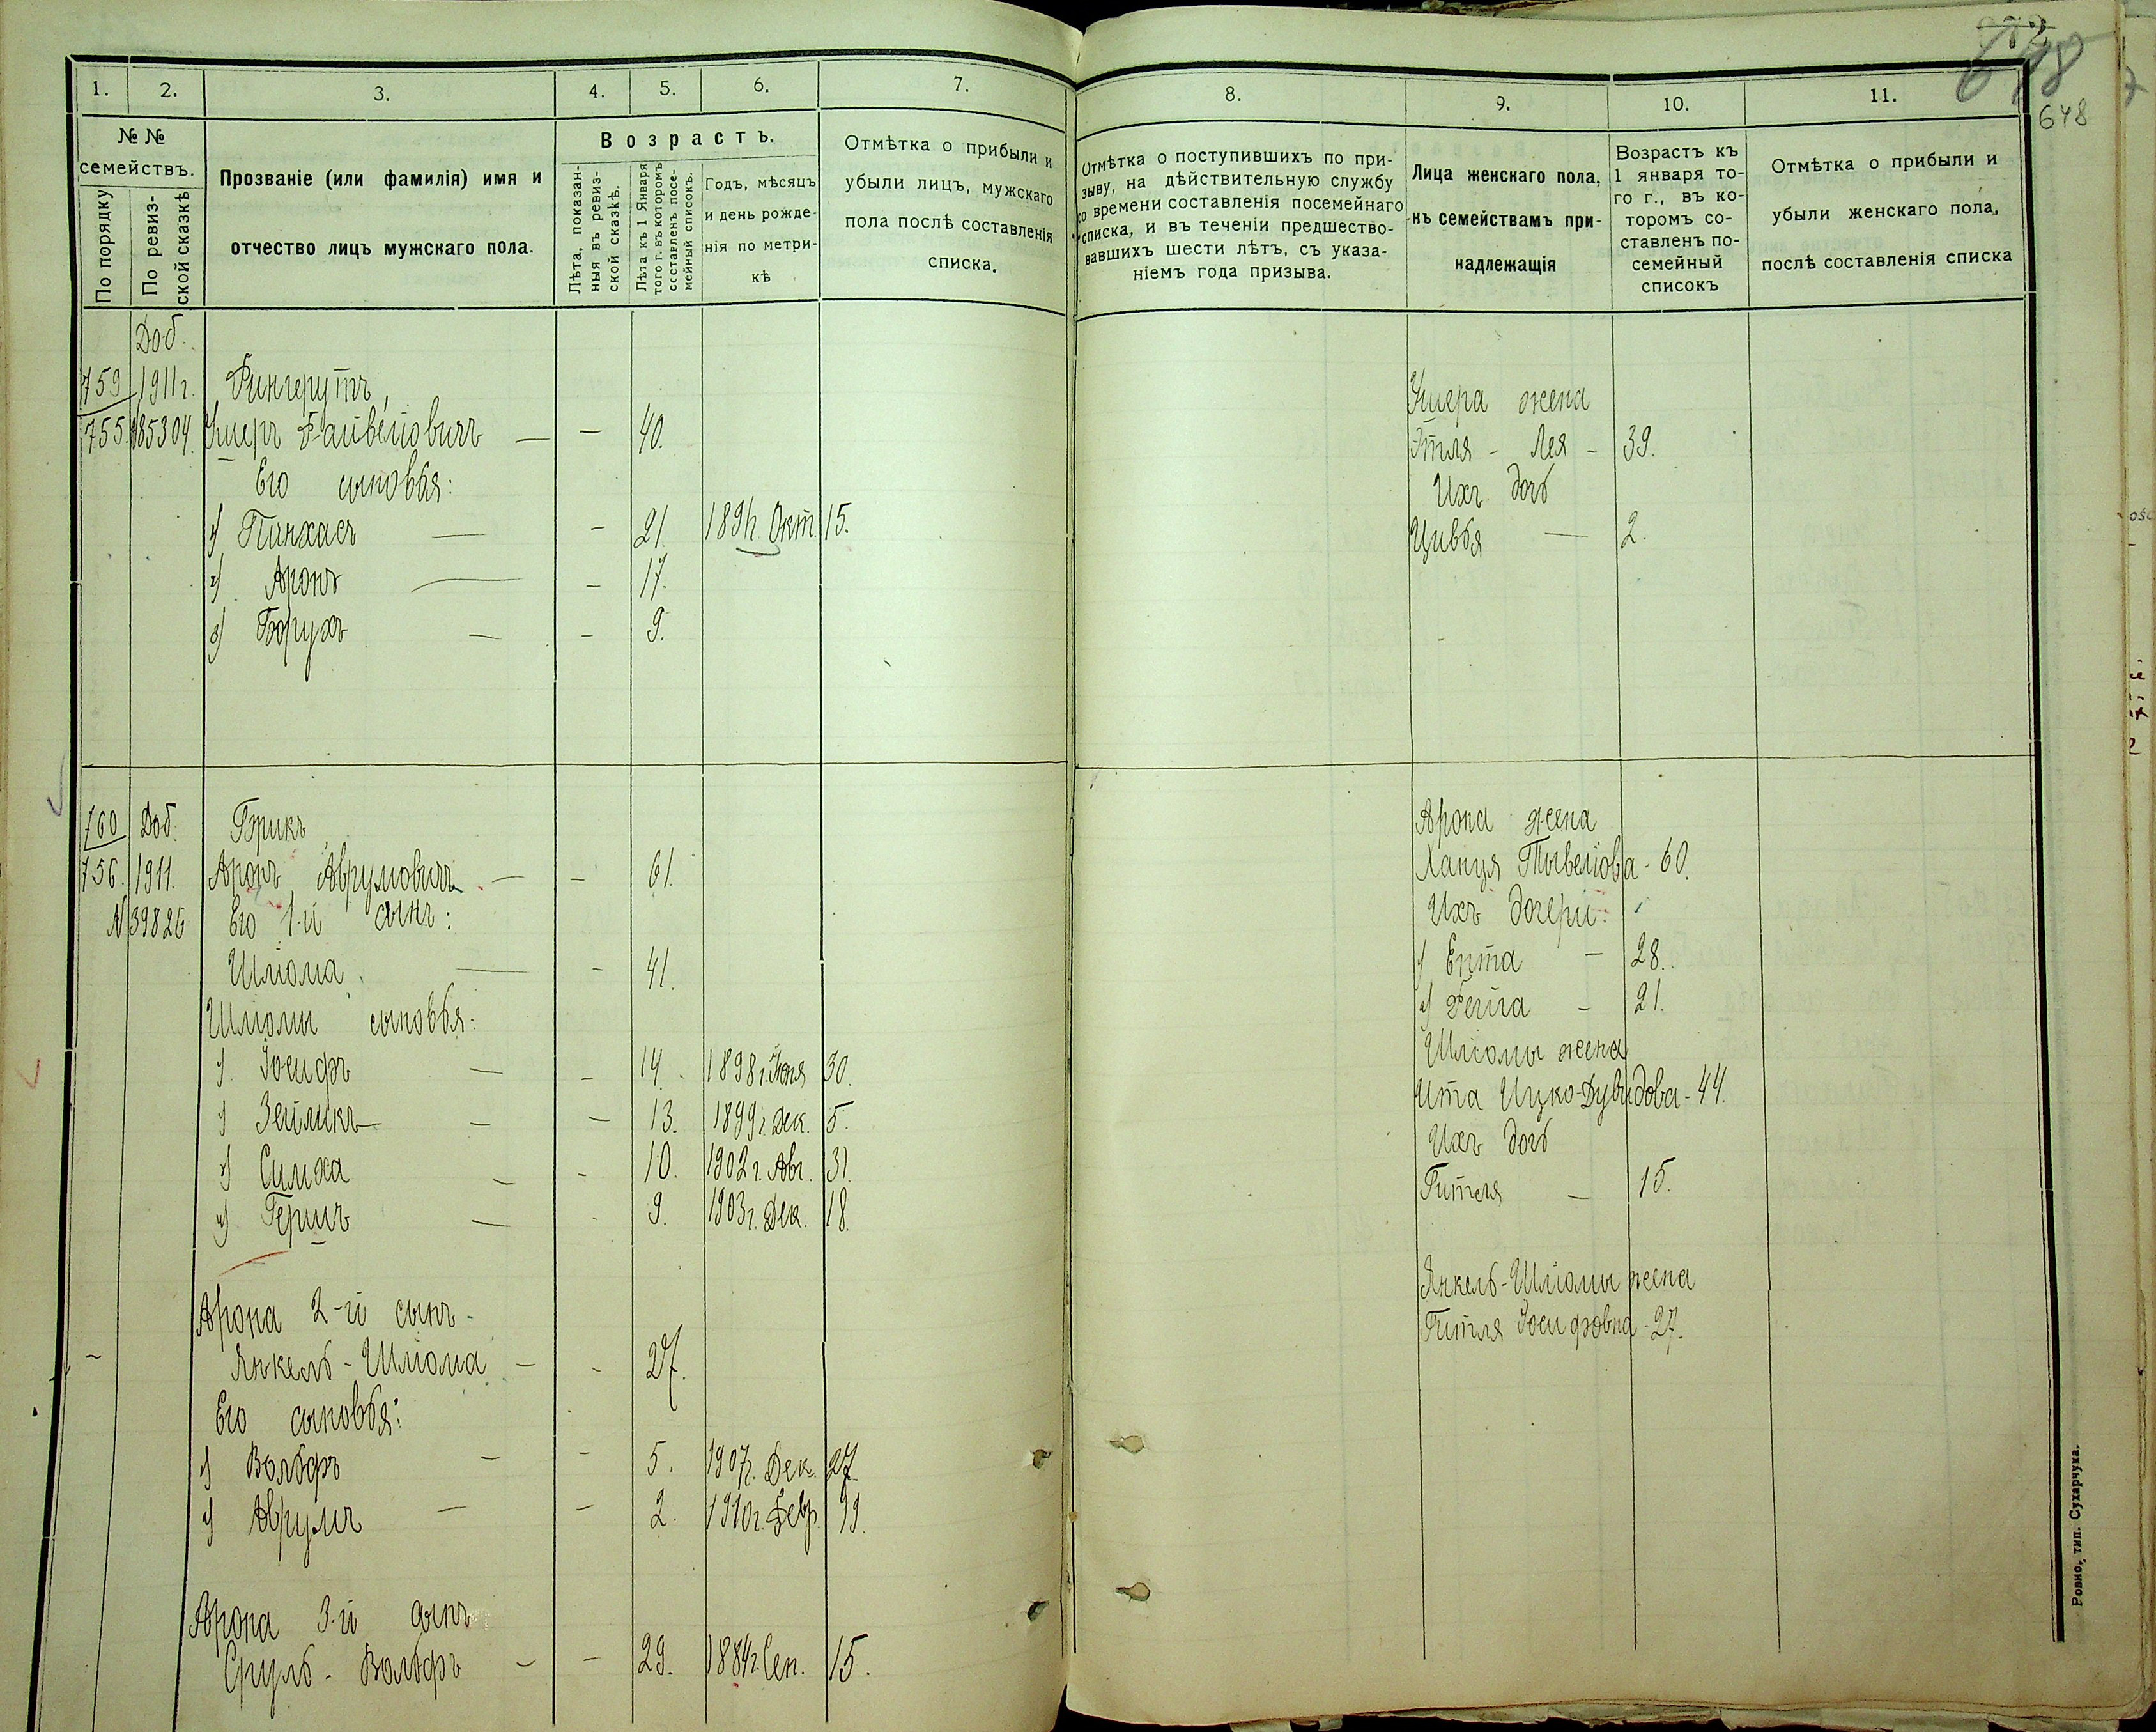 648
648
1. 2. 3. 4. 5. 6. 7.
№ № семействъ.
По порядку
По ревиз-
ской сказкѣ
Прозваніе (или фамилія) имя и
отчество лицъ мужскаго пола.
Возрастъ.
Лѣта, показан-
ныя въ ревиз-
ской сказкѣ.
Лѣта къ 1 Января
того г. въ которомъ
составленъ посе-
мейный списокъ.
Годъ, мѣсяцъ
и день рожде-
нія по метри-
кѣ
Отмѣтка о прибыли и
убыли лицъ, мужскаго
пола послѣ составленія
списка.
Доб.
759 1911 г. Рингерутъ,
755. 185304. Ушеръ Файвелiовичъ — — 40.
Его сыновья:
1) Пинхасъ — — 21. 1891г. Окт. 15.
2) Аронъ — — 17.
3) Борухъ — — 9.
760 Доб. Брикъ
756. 1911. Аронъ Аврумовичъ — — 61.
N 39826 Его 1-й сынъ:
Шлiома — — 41.
Шлiомы сыновья:
1) Iосифъ — — 14. 1898 г. Iюня 30.
2) Зейликъ — — 13. 1899 г. Дек. 5.
3) Симха — — 10. 1902 г. Авг. 31.
4) Гершъ — - 9. 1903 г. Дек. 18.
Арона 2-й сынъ -
Янкель-Шлiома — - 27.
Его сыновья:
1) Вольфъ — — 5. 1907г. Дек. 27.
2) Аврумъ — — 2. 1910 г. Февр. 19.
Арона 3-й сынъ
Сруль-Вольфъ — — 29. 1884г. Сен. 15.
8. 9. 10. 11.
Отмѣтка о поступившихъ по при-
зыву, на дѣйствительную службу
со времени составленія посемейнаго
списка, и въ теченіи предшество-
вавшихъ шести лѣтъ, съ указа-
ніемъ года призыва.
Лица женскаго пола,
къ семействамъ при-
надлежащія
Возрастъ къ
1 января то-
го г., въ ко-
торомъ со-
ставленъ по-
семейный
списокъ
Отмѣтка о прибыли и
убыли женскаго пола,
послѣ составленія списка
Ушера жена
Этля - Лея - 39.
Ихъ дочь
Цивья — 2.
Арона жена
Ханця Тывелiова - 60.
Ихъ дочери:
1) Ента — 28.
2) Фейга — 21.
Шлiомы жена
Ита Ицко-Дувидова - 44.
Ихъ дочь
Гителя — 15.
Янкель-Шлiомы жена
Гитля Iосифовна - 27.
Ровно, тип. Сухарчука.